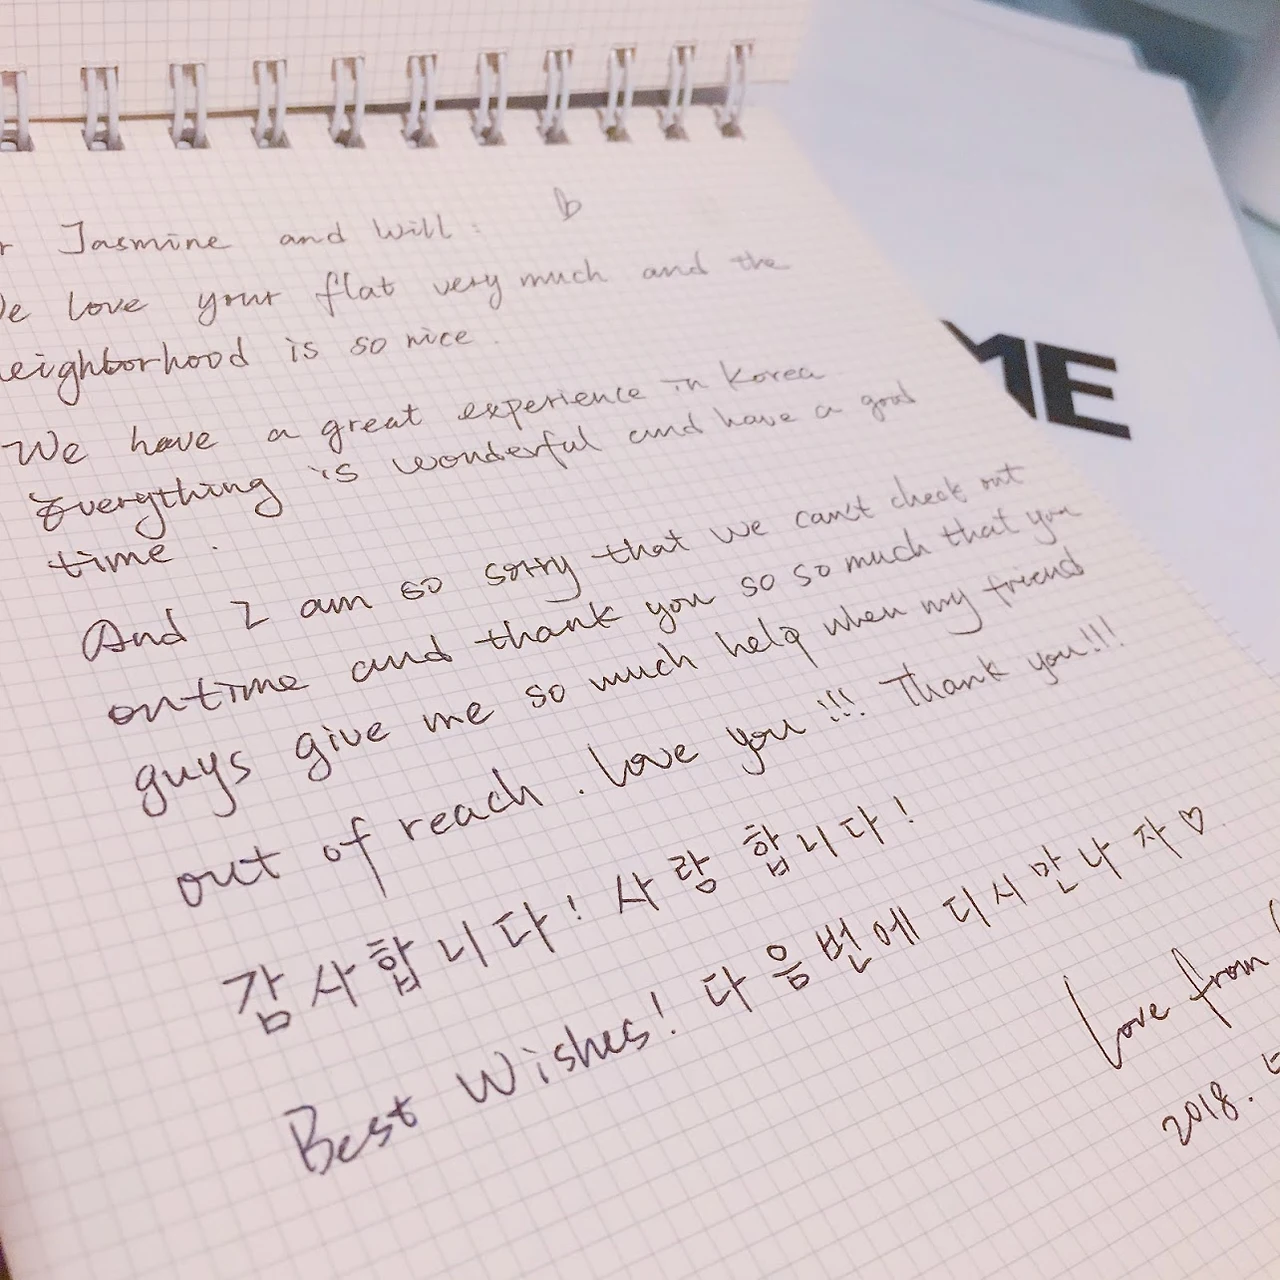 Jasmine and Will :
We love your flat very much and the
neighborhood is so nice.
We have a great experience in Korea
Everything is wonderful and have a good
time.
And I am so sorry that we can't check out
ontime and thank you so so much that you
guys give me so much help when my friend
out of reach. love you!!! Thank you!!!
감사합니다! 사랑 합니다!
Best Wishes! 다음번에 디시만나자♡.
Love from
2018.
ME